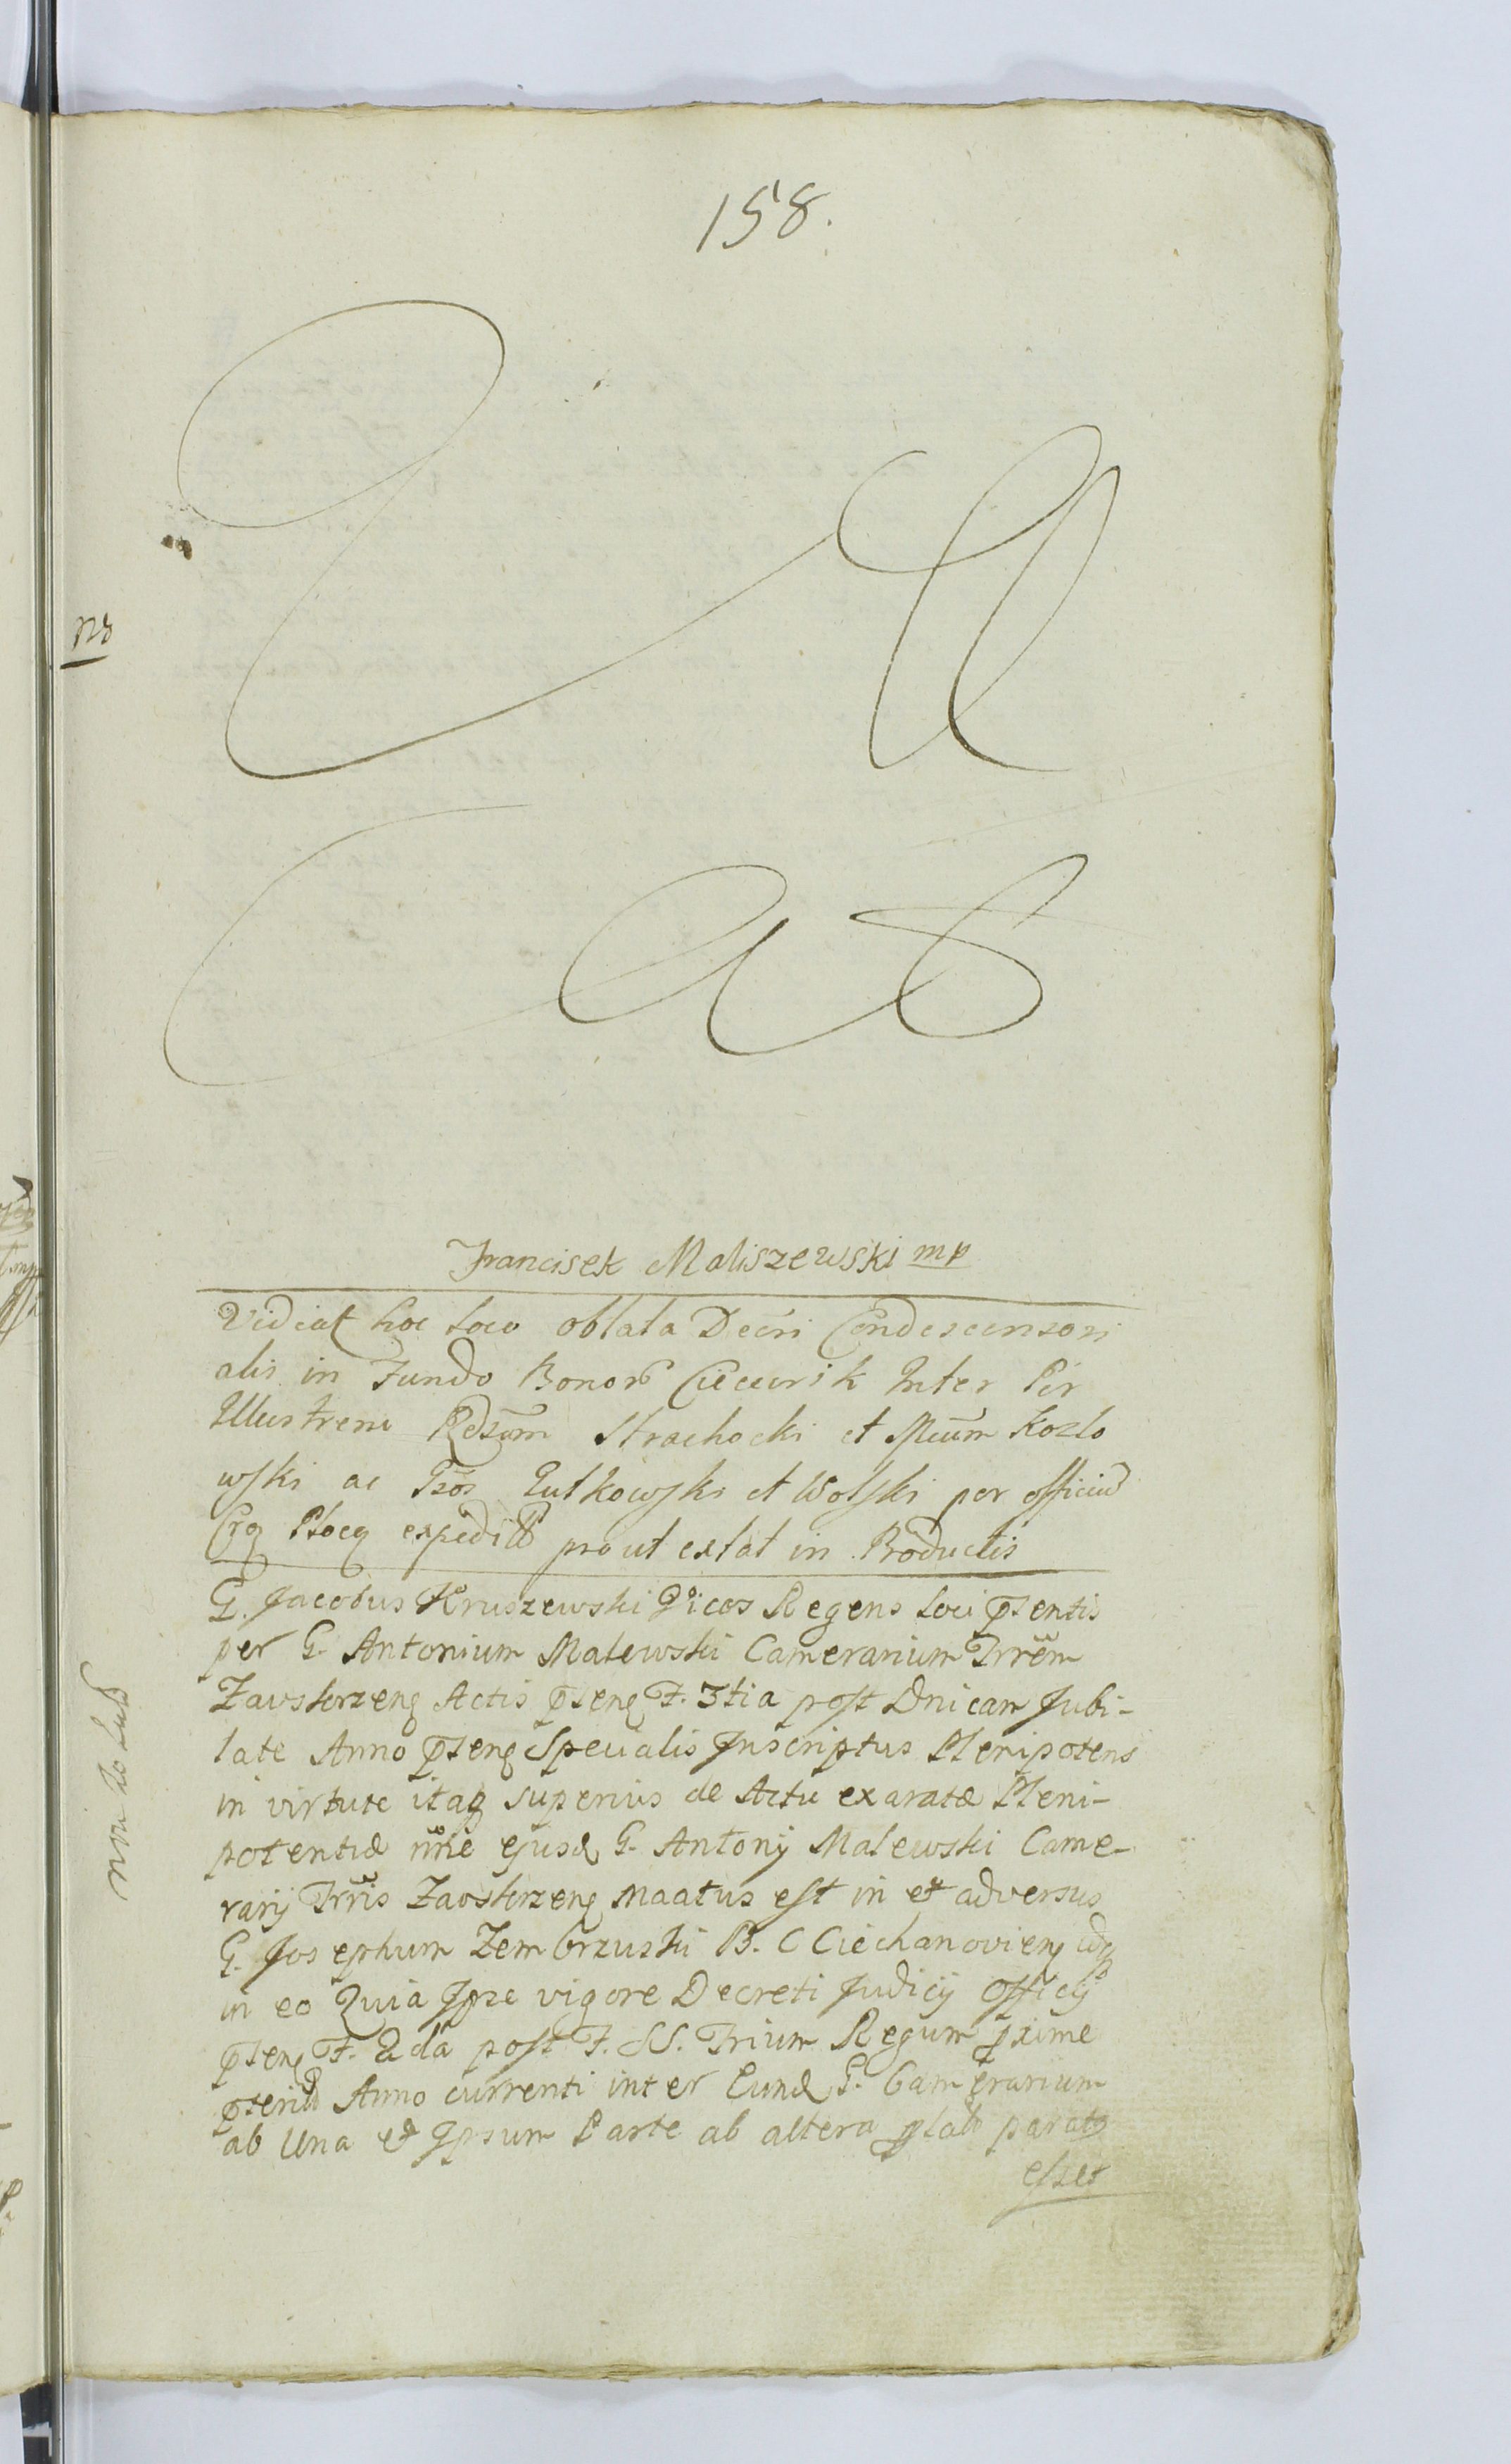 158.
Vacat
ns
Francisek Maliszewski mp
Videat hoc Loco oblata Decri Condescensori
alis in Fundo Bonor Ciecwirsk Inter Per
Illustrem Strachocki et Mcum Kozlo
wski ac Gsos Rutkowski et Wolski per officiu
Płocen expedit prout extat in Productis
G. Jacobus Kruszewski Vices Regens Loci psentis
per G. Antonium Malewski Camerarium Trrem
Zawskrzen Actis psen F. 3tia post Dnicam Jubi-
late Anno psen Specialis Inscriptus Plenipotens
in virtute itaq superius de Actu exaratæ Pleni-
potentiæ nne ejusd G. Antonij Malewski Came-
rarij Trris Zawskrzen Maatus est in et adversus
G. Josephum Zembrzuski B. C Ciechanovien idq
in eo Quia Ipse vigore Decreti Judicij Officij
psen F. 2da post F. SS. Trium Regum pxime
pterit Anno currenti inter Eund G. Camerarium
ab Una et Ipsum Parte ab altera plati parat
esset